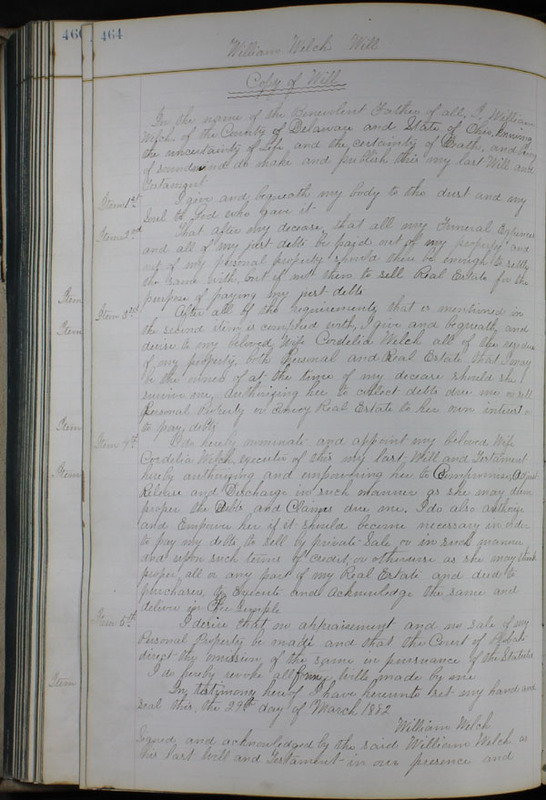 460 464
William Welch Will
Copy of Will
In the name of the Benevolent Father of all, I, William
Welch, of the County of Delaware and State of Ohio, knowing
the uncertainty of Life and the certainty of Death, and being
of sound mind do make and publish this my last Will and
Testament
Item 1st I give and bequeath my body to the dust and my
Soul to God who gave it
Item 2nd That after my decease, that all my Funeral Expenses
and all of my just debts be paid out of my property and
out of my personal property should there be enough to settle
the same with, but if not then to sell Real Estate for the
Item purpose of paying my just debts
Item 3rd After all of the requirements that is mentioned in
Item the second item is complied with, I give and bequeath and
devise to my beloved Wife Cordelia Welch all of the residue
of my property, both Personal and Real Estate that I may
be the owner of at the time of my decease should she
survive me, Authorizing her to collect debts due me or sell
Personal Property or Convey Real Estate to her own interest or
Item to pay debts
Item 4th I do hereby nominate and appoint my beloved Wife
Cordelia Welch executor of this my last Will and Testament
Item hereby authorizing and empowering her to Compromise, Adjust
Release and Discharge in such manner as she may deem
proper the Debts and Claims due me, I do also authorize
and Empower her if it should become necessary in order
to pay my debts to sell by private Sale or in such manner
and upon such terms of credit, or otherwise as she may think
proper, all or any part of my Real Estate and deed to
purchasers, to Execute and Acknowledge the same and
deliver in Fee Simple
Item 5th I desire that no appraisement and no sale of my
Personal Property be made and that the Court of Probate
direct the omission of the same in pursuance of the Statute
Item I do hereby revoke all former Wills made by me
In testimony hereof I have hereunto set my hand and
seal this, the 29th day of March 1882
William Welch
Signed and acknowledged by the said William Welch as
his last Will and Testament in our presence and